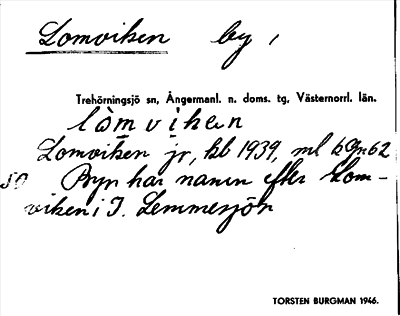 Lomviken by,
Trehörningsjö sn, Ångermanl. n. doms. tg, Västernorrl. län.
lòmviken
Lomviken jr, kb 1939, ml k Gn 62
SO Byn har namn efter Lom-
viken i I. Lemmesjön
TORSTEN BURGMAN 1946.